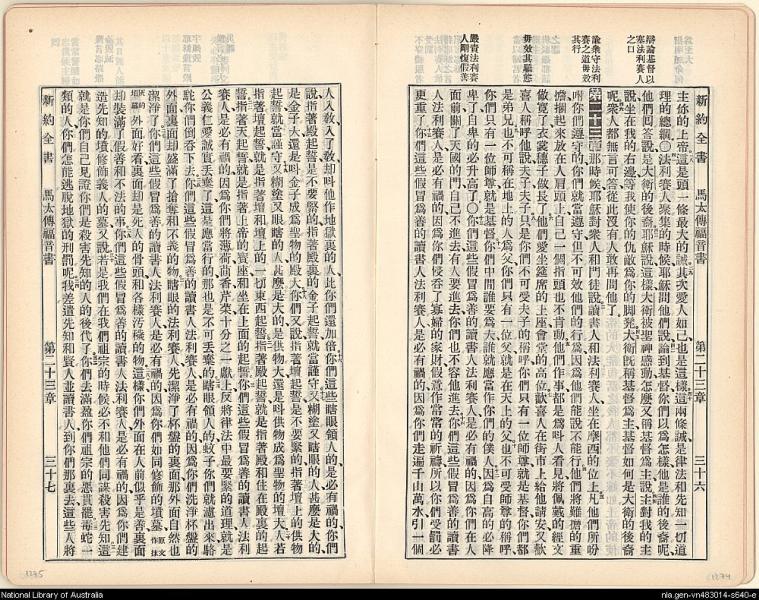 新約全書 馬太傳福音書 第二十三章 三十六
辯論基督以塞法利賽人之口
諭衆守法利賽之道毋效其行
毋效其驕態
嚴責法利賽人剛愎假善
主你的上帝這是頭一條最大的誡其次愛人如己也是這樣這兩條誡是律法和先知一切道
理的總綱○法利賽人聚集的時候耶穌問他們說論到基督你們以為怎樣他是誰的後裔呢
他們回答說是大衛的後裔耶穌說這樣大衛被聖神感動怎麼又稱基督為主說主對我的主
說坐在我的右邊等我使你的仇敵為你的脚凳大衛既稱基督為主基督如何是大衛的後裔
呢衆人都無言可答從此沒有人敢再問他了
第二十三章那時候耶穌對衆人和門徒說讀書人和法利賽人坐在摩西的位上凡他們所吩
咐你們遵守的你們就當遵守但不可效他們的行為因為他們能說不能行他們將難擔的重
擔捆起來放在人肩頭上自己一個指頭也不肯動他們作事都是為叫人看見將佩戴的經文
做寬了衣裳繸子做長了他們愛坐筵席的上座會堂的高位歡喜人在街市上給他請安又歡
喜人稱呼他說夫子夫子只是你們不可受夫子的稱呼你們只有一位師尊就是基督你們都
是弟兄也不可稱在地上的人為父你們只有一位父就是在天上的父也不可受師尊的稱呼
你們只有一位師尊就是基督你們中間誰要為大誰就應當作你們的僕人因為自高的必降
卑了自卑的必升高了○你們這些假冒為善的讀書人法利賽人是必有禍的因為你們在人
面前關了天國的門自己不進去有人要進去你們也不容他進去你們這些假冒為善的讀書
人法利賽人是必有禍的因為你們侵吞了寡婦的家財假意作常常的祈禱所以你們受罰必
更重了你們這些假冒為善的讀書人法利賽人是必有禍的因為你們走遍了千山萬水引一個
人入教入了教却叫他作地獄裏的人比你們還加倍你們這些瞎眼領人的是必有禍的你們
說指著殿起誓是不要緊的指著殿裏的金子起誓就當謹守又糊塗又瞎眼的人甚麼是大的
是金子大還是叫金子成為聖物的殿大你們又說指著壇起誓是不要緊的指著壇上的供物
起誓就當謹守又糊塗又瞎眼的人甚麼是大的是供物大還是叫供物成為聖物的壇大人若
指著壇起誓就是指著壇和壇上的一切東西起誓指著殿起誓就是指著殿和住在殿裏的起
誓指著天起誓就是指著上帝的寶座和坐在上面的起誓你們這些假冒為善的讀書人法利
賽人是必有禍的因為你們將薄荷茴香芹菜十分之一獻上反將律法中最要緊的道理就是
公義仁愛誠實丟棄了這是應當行的那也是不可丟棄的瞎眼領人的蚊子你們就濾出來駱
駝你們倒吞下去你們這些假冒為善的讀書人法利賽人是必有禍的因為你們洗淨杯盤的
外面裏面却盛滿了搶奪和不義的物瞎眼的法利賽人先潔淨了杯盤的裏面那外面自然也
潔淨了你們這些假冒為善的讀書人法利賽人是必有禍的因為你們如同修飾的墳墓
外面好看裏面却是死人的骨頭和各樣污穢的物這樣你們外面在人前似乎是善裏面
却裝滿了假善和不法的事你們這些假冒為善的讀書人法利賽人是必有禍的因為你們建
造先知的墳修飾義人的墓又說若是我們在我們祖宗的時候必不和他們同謀殺害先知這
就是你們自己見證你們是殺害先知的人的後代了你們去滿盈你們祖宗的惡貫罷毒蛇一
類的人你們怎能逃脫地獄的刑罰呢我差遣先知和賢人並讀書人到你們那裏去這些人將
新約全書 馬太傳福音書 第二十三章 三十七
1375
1374
National Library of Australia
nla.gen-vn483014-s640-e